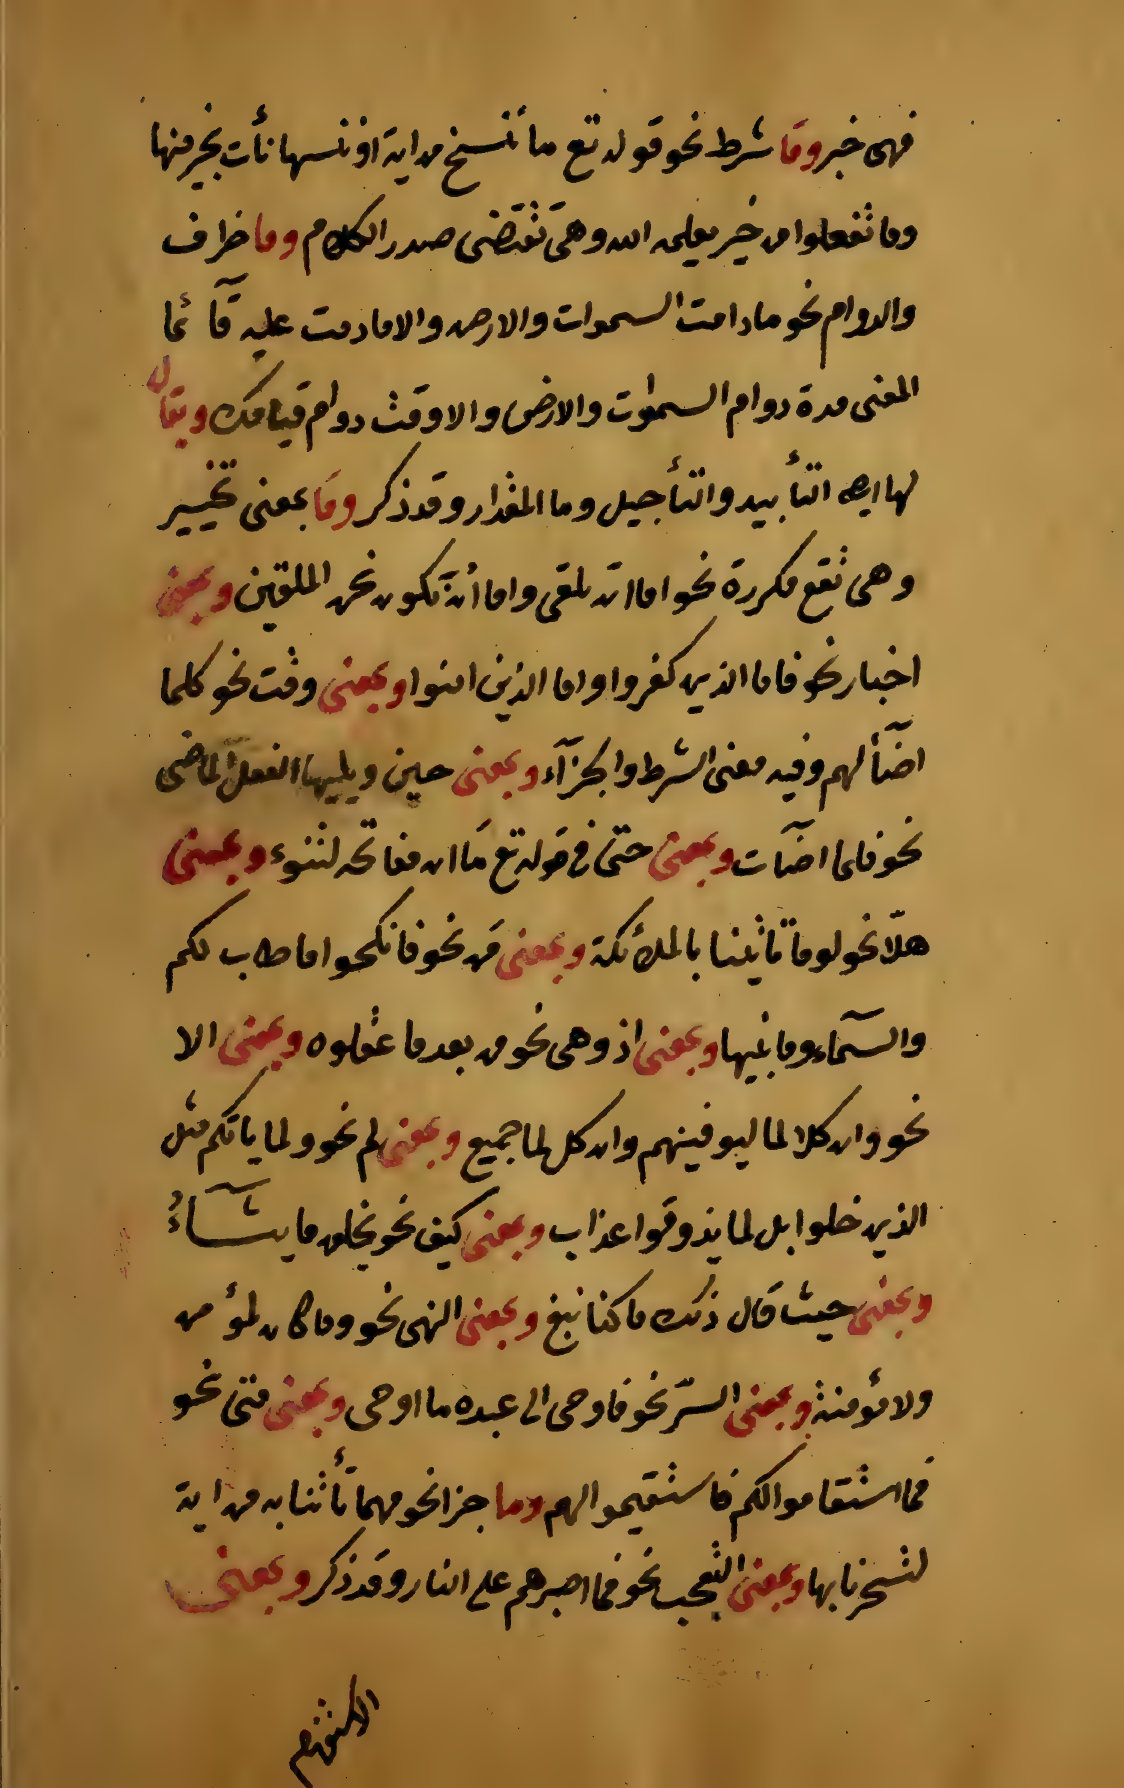 فهى خبر وما شرط نحو قوله تع ما ننسخ من اية او ننسها نأت بخير منها
وما تفعلوا من خير يعلمه الله وهى تقتضى صدر الكلام وما ظرف
والدوام نحو ما دامت السموات والارض والا ما دمت عليه قآئما
المعنى مدة دوام السموات والارض والا وقت دوام قيامك ويقال
لها ايضا التأبيد والتأجيل وما المقدار وقد ذكر وما بمعنى تخيير
وهى تقع مكررة نحو اما ان تلقى واما أن نكون نحن الملقين وبمعنى
اخبار نحو فاما الذين كفروا واما الذين امنوا وبمعنى وقت نحو كلما
اضآ لهم وفيه معنى الشرط والجزآء وبمعنى حين ويليها الفعل الماضى
نحو فلما اضآت وبمعنى حتى فى قوله تع ما ان مفاتحه لتنوء وبمعنى
هلّا نحو لو ما تأتينا بالملأئكة وبمعنى من نحو فانكحوا ما طاب لكم
والسمآء وما بنيها وبمعنى اذ وهى نحو من بعد ما عقلوه وبمعنى الا
نحو وان كلا لما ليوفينهم وان كل لما جميع وبمعنى لم نحو ولما ياتكم مثل
الذين خلوا بل لما يذوقوا عذاب وبمعنى كيف نحو يخلق ما يشآءُ
وبمعنى حيث قال ذلك ما كنا نبغ وبمعنى النهى نحو وما كان لمؤمن
ولا مؤمنة وبمعنى السرّ نحو فاوحى الى عبده ما اوحى وبمعنى متى نحو
فما استقاموا لكم فاستقيموا لهم وما جزا نحو مهما تأتنا به من اية
لتسحرنا بها وبمعنى التعجب نحو فما اصبرهم على النار وقد ذكر وبمعنى